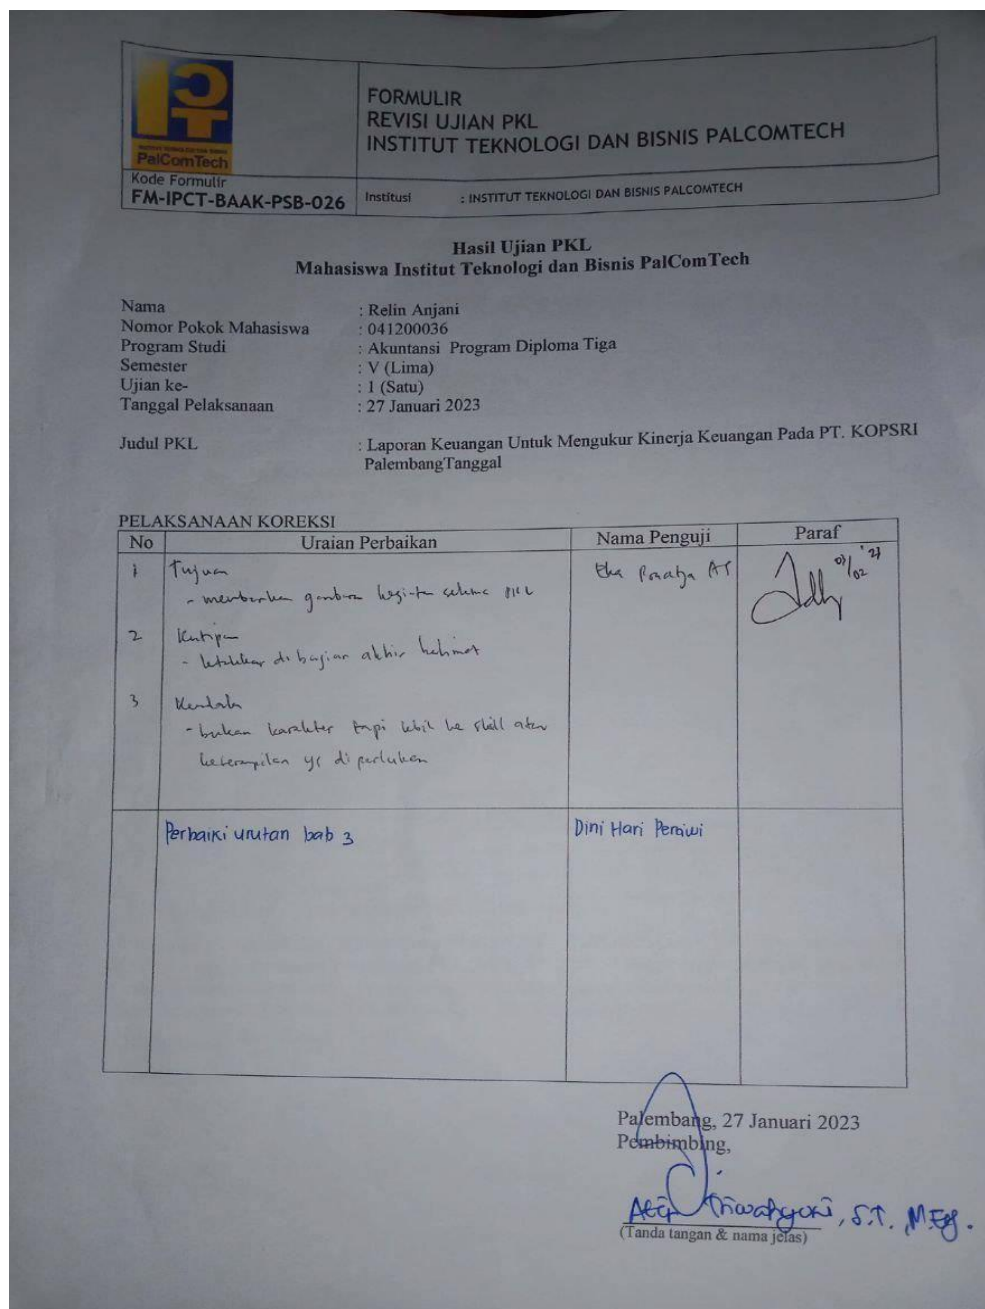 INSTITUT TEKNOLOGI DAN BISNIS
PalComTech
FORMULIR
REVISI UJIAN PKL
INSTITUT TEKNOLOGI DAN BISNIS PALCOMTECH
Kode Formulir
FM-IPCT-BAAK-PSB-026
Institusi : INSTITUT TEKNOLOGI DAN BISNIS PALCOMTECH
Hasil Ujian PKL
Mahasiswa Institut Teknologi dan Bisnis PalComTech
Nama : Relin Anjani
Nomor Pokok Mahasiswa : 041200036
Program Studi : Akuntansi Program Diploma Tiga
Semester : V (Lima)
Ujian ke- : 1 (Satu)
Tanggal Pelaksanaan : 27 Januari 2023
Judul PKL : Laporan Keuangan Untuk Mengukur Kinerja Keuangan Pada PT. KOPSRI
PalembangTanggal
PELAKSANAAN KOREKSI
No Uraian Perbaikan Nama Penguji Paraf
1 Tujuan Eka
- PKL
2 Kutipan
- di bagian akhir kalimat
3 Kendala
- bukan karakter tapi lebih ke skill atau
keterampilan yg diperlukan
Perbaiki urutan bab 3 Dini Hari
Palembang, 27 Januari 2023
Pembimbing,
S.T.,
(Tanda tangan & nama jelas)